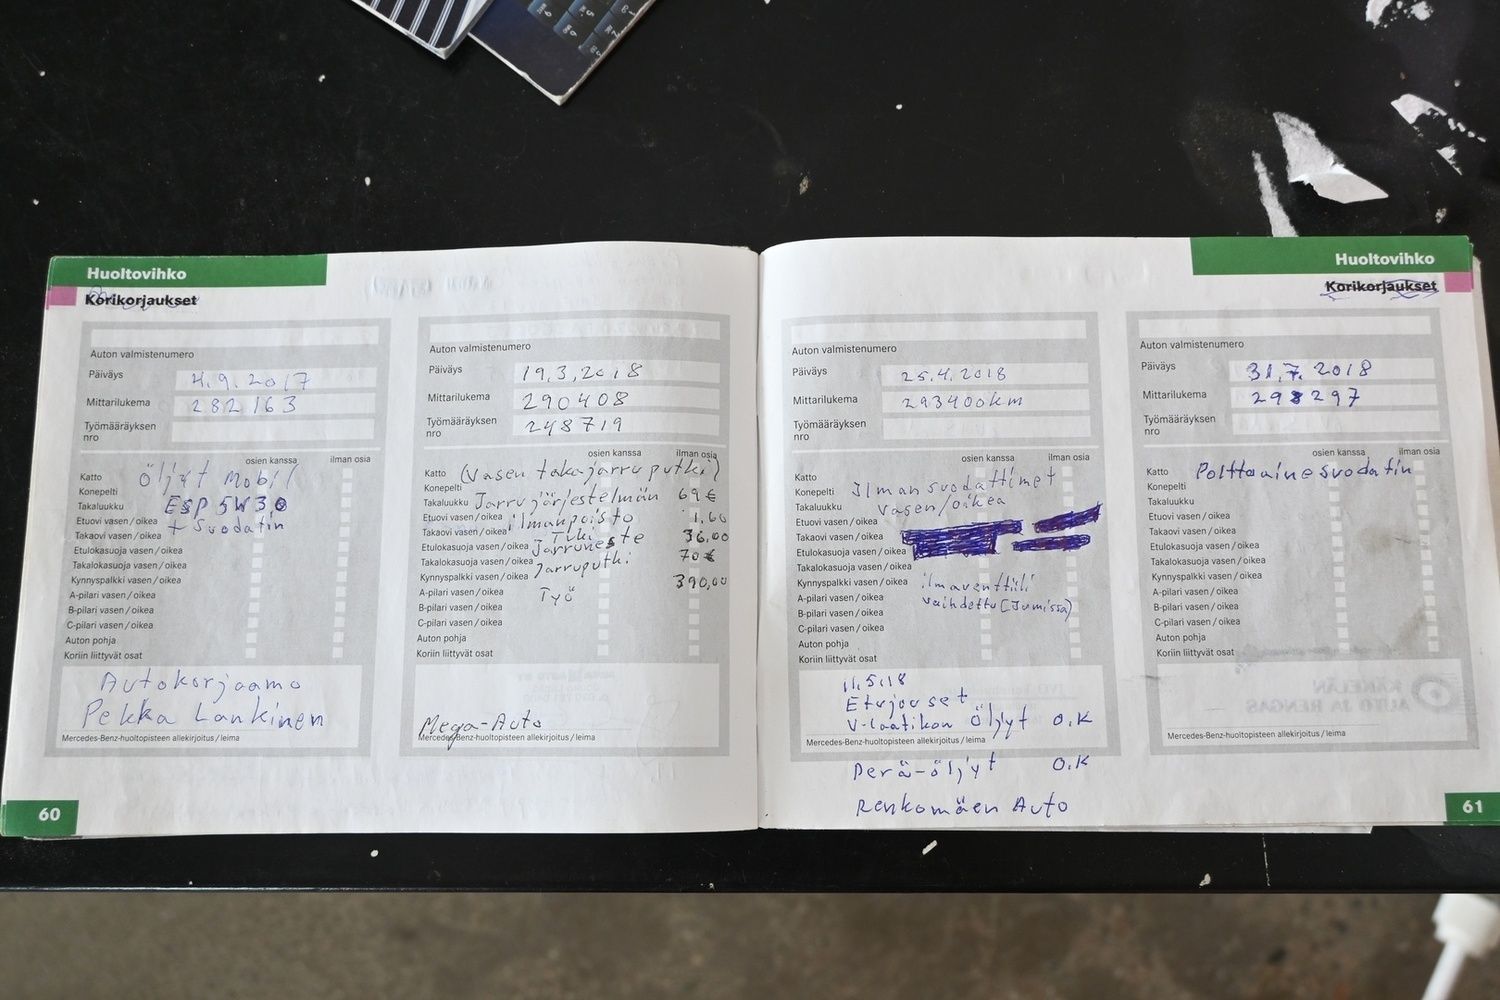 Huoltovihko
Korikorjaukset
Auton valmistenumero
Päiväys 4.9.2017
Mittarilukema 282163
Työmääräyksen
nro
osien kanssa ilman osia
Katto
Konepelti
Takaluukku
Etuovi vasen / oikea
Takaovi vasen / oikea
Etulokasuoja vasen / oikea
Takalokasuoja vasen / oikea
Kynnyspalkki vasen / oikea
A-pilari vasen / oikea
B-pilari vasen / oikea
C-pilari vasen / oikea
Auton pohja
Koriin liittyvät osat
öljyt Mobil
ESP 5W30
+ Suodatin
Autokorjaamo
Pekka Lankinen
Mercedes-Benz-huoltopisteen allekirjoitus / leima
60
Auton valmistenumero
Päiväys 19.3.2018
Mittarilukema 290408
Työmääräyksen
nro 248719
osien kanssa ilman osia
Katto
Konepelti
Takaluukku
Etuovi vasen / oikea
Takaovi vasen / oikea
Etulokasuoja vasen / oikea
Takalokasuoja vasen / oikea
Kynnyspalkki vasen / oikea
A-pilari vasen / oikea
B-pilari vasen / oikea
C-pilari vasen / oikea
Auton pohja
Koriin liittyvät osat
(Vasen takajarruputki)
Jarrujärjestelmän 69€
ilmanpoisto 1,60
Jarruneste 36,00
Jarruputki 70€
Työ 390,00
Mega-Auto
Mercedes-Benz-huoltopisteen allekirjoitus / leima
Huoltovihko
Korikorjaukset
Auton valmistenumero
Päiväys 25.4.2018
Mittarilukema 293400km
Työmääräyksen
nro
osien kanssa ilman osia
Katto
Konepelti
Takaluukku
Etuovi vasen / oikea
Takaovi vasen / oikea
Etulokasuoja vasen / oikea
Takalokasuoja vasen / oikea
Kynnyspalkki vasen / oikea
A-pilari vasen / oikea
B-pilari vasen / oikea
C-pilari vasen / oikea
Auton pohja
Koriin liittyvät osat
Ilmansuodattimet
Vasen/oikea
ilmaventtiili
vaihdettu (Jumissa)
11.5.18
Etujouset
V-laatikon öljyt O.K
Mercedes-Benz-huoltopisteen allekirjoitus / leima
Perä-öljyt O.K
Renkomäen Auto
Auton valmistenumero
Päiväys 31.7.2018
Mittarilukema 298297
Työmääräyksen
nro
osien kanssa ilman osia
Katto
Konepelti
Takaluukku
Etuovi vasen / oikea
Takaovi vasen / oikea
Etulokasuoja vasen / oikea
Takalokasuoja vasen / oikea
Kynnyspalkki vasen / oikea
A-pilari vasen / oikea
B-pilari vasen / oikea
C-pilari vasen / oikea
Auton pohja
Koriin liittyvät osat
Polttoainesuodatin
Mercedes-Benz-huoltopisteen allekirjoitus / leima
61